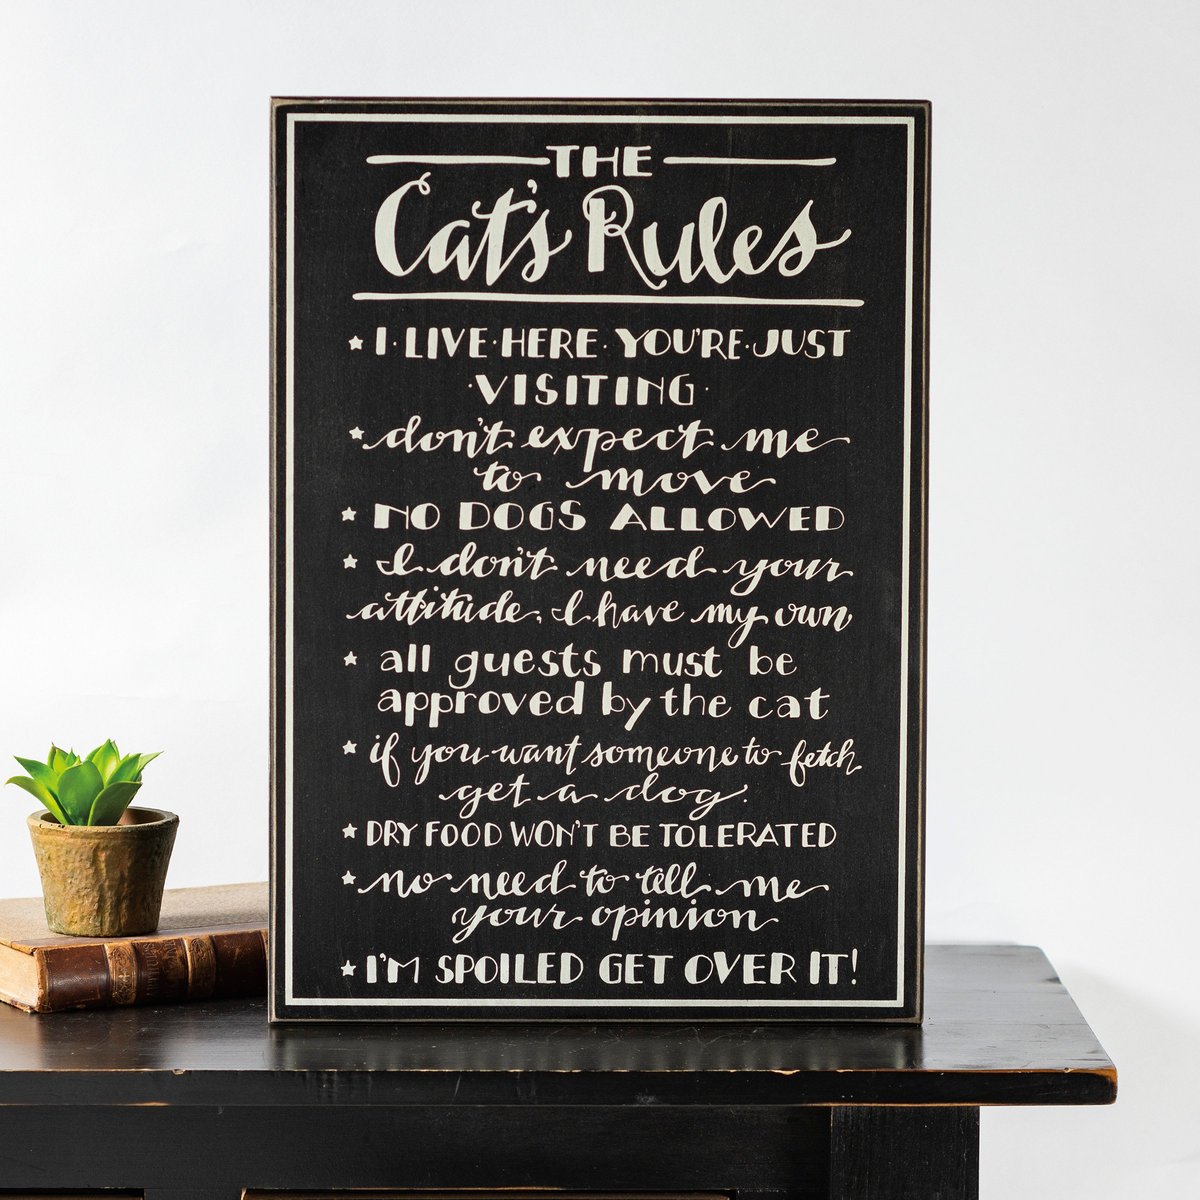 THE
Cat's Rules
★ I · LIVE · HERE · YOU'RE · JUST
· VISITING ·
★ don't expect me
to move
★ NO DOGS ALLOWED
★ I don't need your
attitude, I have my own
★ all guests must be
approved by the cat
★ if you want someone to fetch
get a dog.
★ DRY FOOD WON'T BE TOLERATED
★ no need to tell me
your opinion
★ I'M SPOILED GET OVER IT!